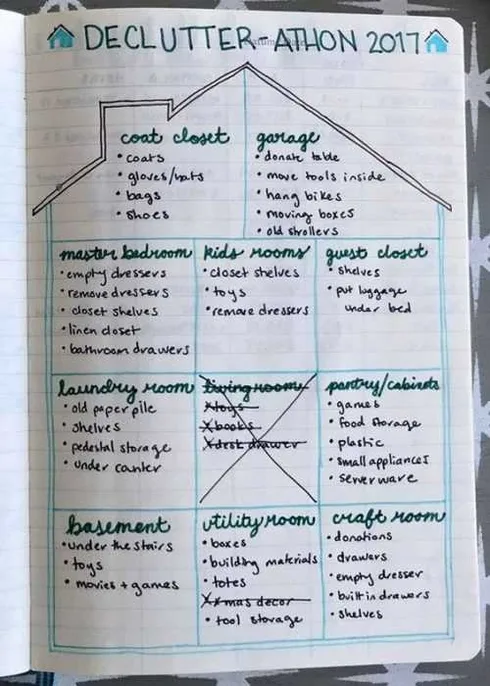 DECLUTTER-ATHON 2017
coat closet
• coats
• gloves/hats
• bags
• shoes
garage
• donate table
• move tools inside
• hang bikes
• moving boxes
• old strollers
master bedroom
• empty dressers
• remove dressers
• closet shelves
• linen closet
• bathroom drawers
kids rooms
• closet shelves
• toys
• remove dressers
guest closet
• shelves
• put luggage
under bed
laundry room
• old paper pile
• shelves
• pedestal storage
• under counter
living room
• toys
• books
• desk drawer
pantry/cabinets
• games
• food storage
• plastic
• small appliances
• serverware
basement
• under the stairs
• toys
• movies + games
utility room
• boxes
• building materials
• totes
• xmas decor
• tool storage
craft room
• donations
• drawers
• empty dresser
• built in drawers
• shelves